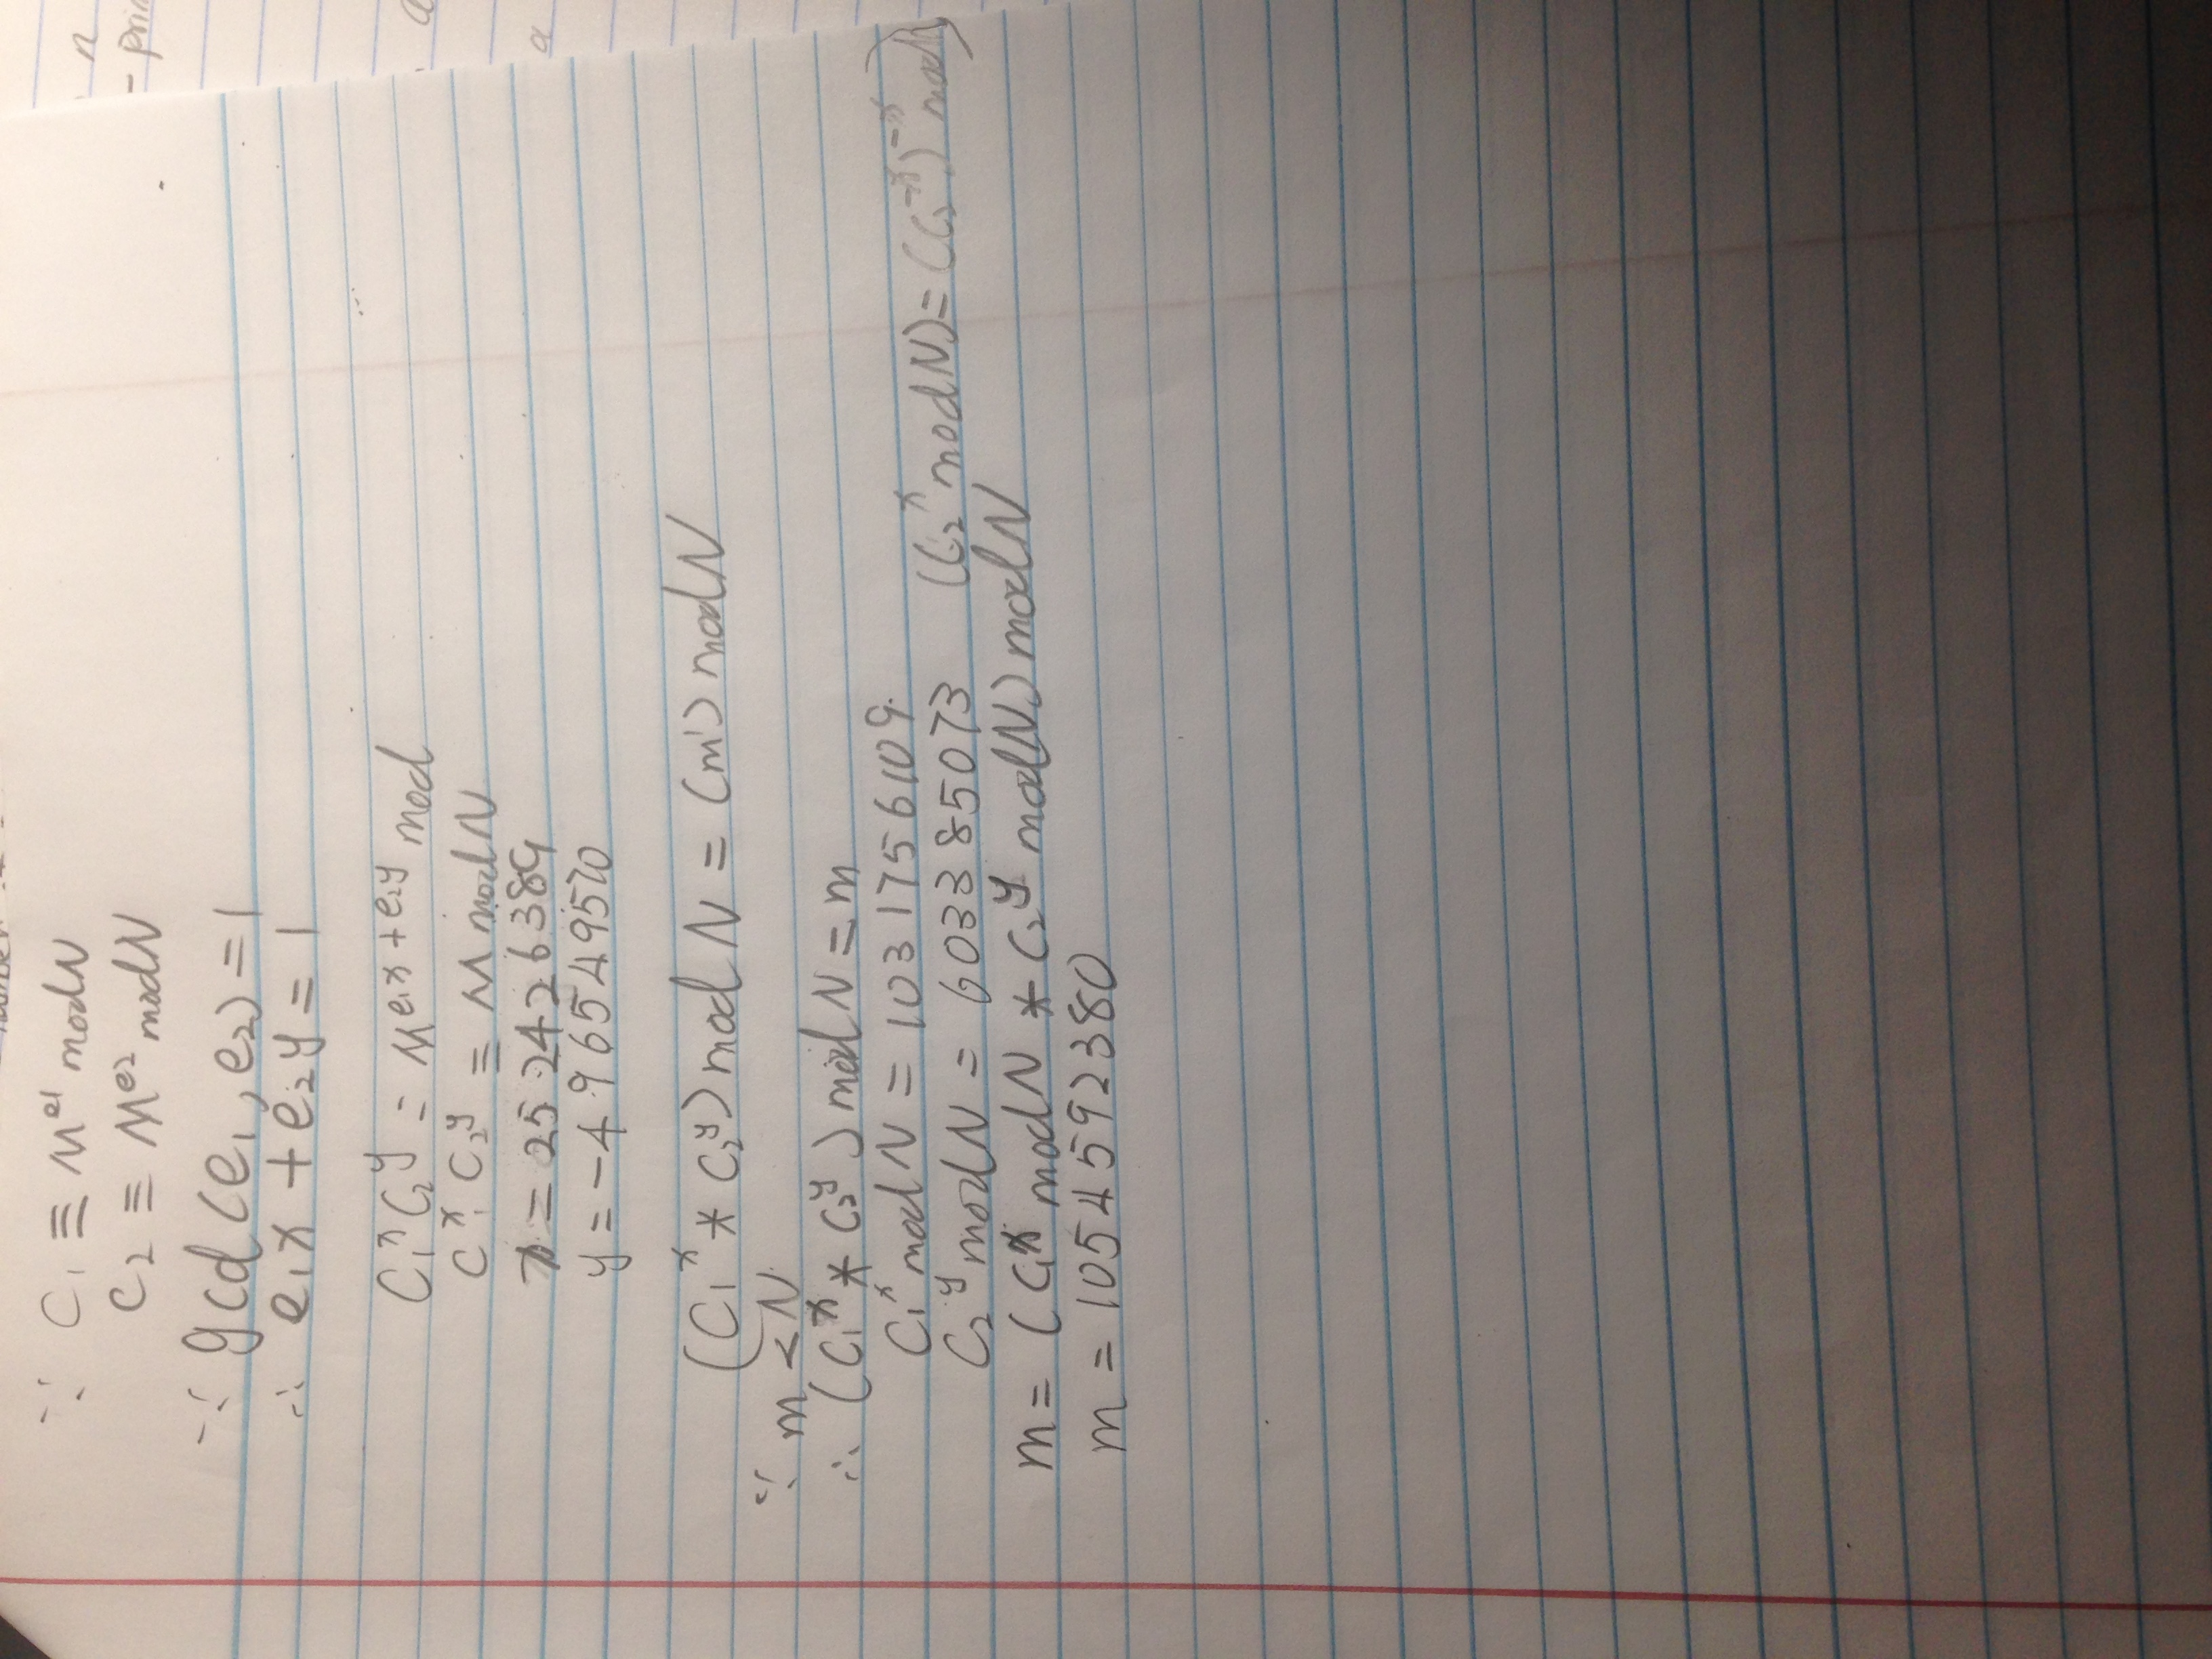 ∵ C₁ ≡ M^e1 mod N
C₂ ≡ M^e2 mod N
∵ gcd(e₁, e₂) = 1
∴ e₁x + e₂y = 1
C₁^x C₂^y = M^e₁x + e₂y mod
C^x · C₂^y ≡ M mod N
x = 252426389
y = -496549570
(C₁^x * C₂^y) mod N = (m¹) mod N
∵ m < N
∴ (C₁^x * C₂^y) mod N = m
C₁^x mod N = 1031756109
C₂^y mod N = 603385073 (C₂^x mod N) = (C₂^-x)^-x mod
m = (C₁^x mod N * C₂^y mod N) mod N
m = 1054592380
n
a